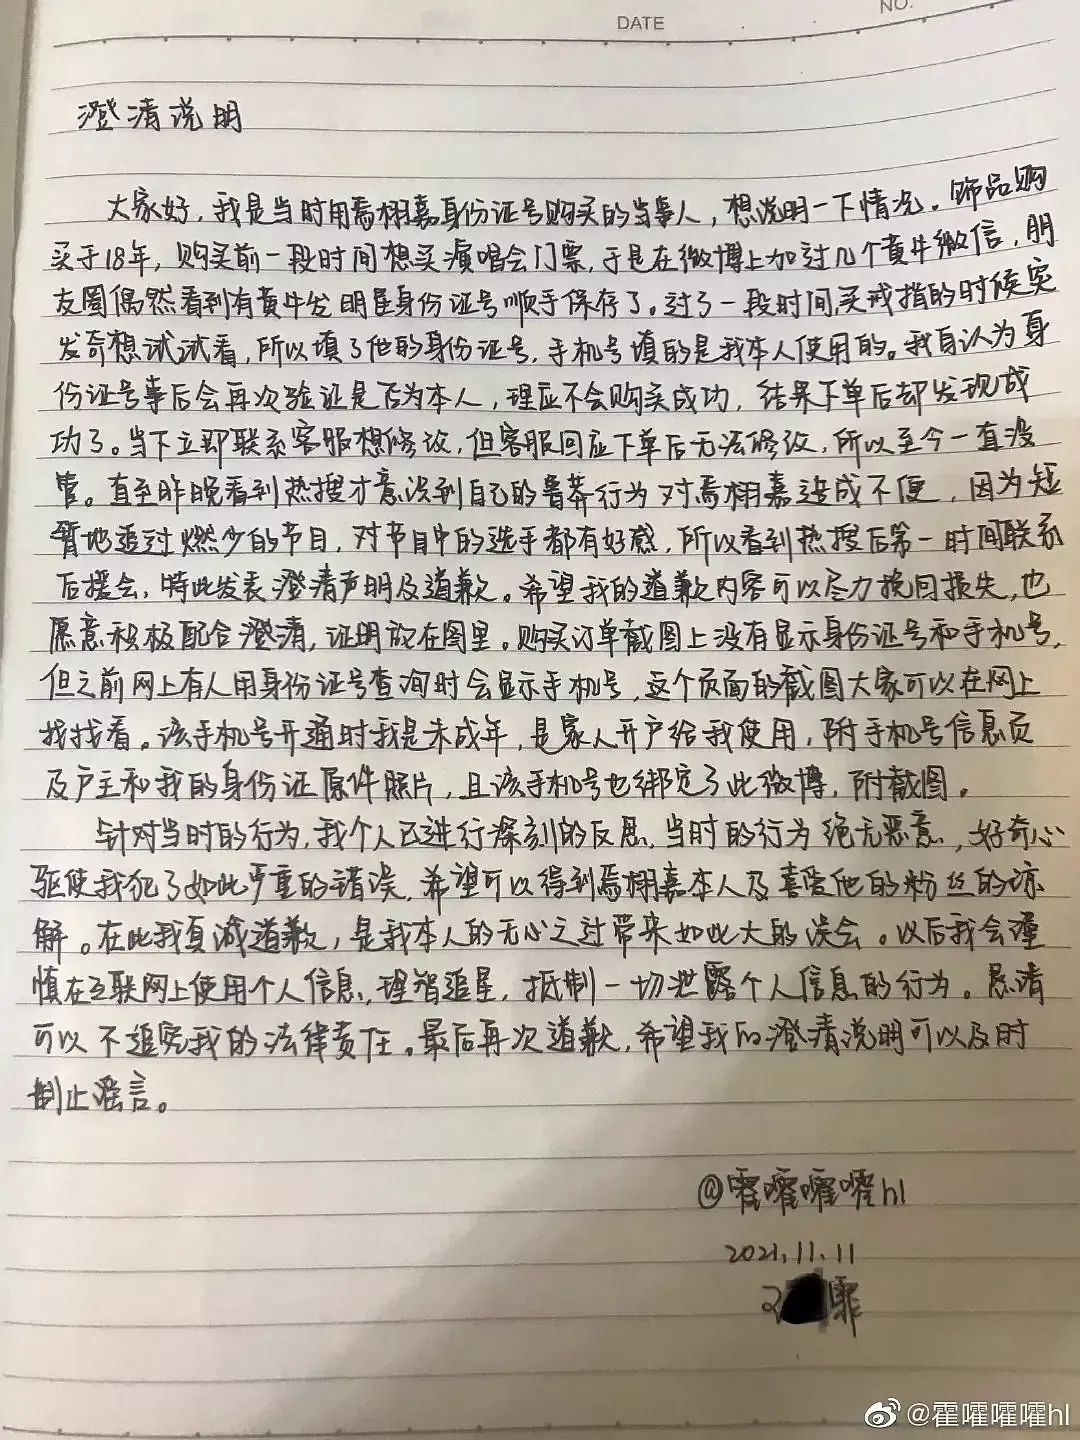 DATE
NO.
澄清说明
大家好，我是当时用焉栩嘉身份证号购买的当事人，想说明一下情况。饰品购
买于18年，购买前一段时间想买演唱会门票，于是在微博上加过几个黄牛微信，朋
友圈偶然看到有黄牛发明星身份证号顺手保存了。过了一段时间，买戒指的时候突
发奇想试试看，所以填了他的身份证号，手机号填的是我本人使用的。我自认为身
份证号事后会再次验证是否为本人，理应不会购买成功，结果下单后却发现成
功了。当下立即联系客服想修改，但客服回应下单后无法修改，所以至今一直没
管。直至昨晚看到热搜才意识到自己的鲁莽行为对焉栩嘉造成不便，因为短
暂地追过燃少的节目，对节目中的选手都有好感，所以看到热搜后第一时间联系
后援会，特此发表澄清声明及道歉。希望我的道歉内容可以尽力挽回损失，也
愿意积极配合澄清，证明放在图里。购买订单截图上没有显示身份证号和手机号，
但之前网上有人用身份证号查询时会显示手机号，这个页面的截图大家可以在网上
找找看。该手机号开通时我是未成年，是家人开户给我使用，附手机号信息页
及户主和我的身份证原件照片，且该手机号也绑定了此微博，附截图。
针对当时的行为，我个人已进行深刻的反思，当时的行为绝无恶意，好奇心
驱使我犯了如此严重的错误，希望可以得到焉栩嘉本人及喜爱他的粉丝的谅
解。在此我真诚道歉，是我本人的无心之过带来如此大的误会。以后我会谨
慎在互联网上使用个人信息，理智追星，抵制一切泄露个人信息的行为。恳请
可以不追究我的法律责任。最后再次道歉，希望我的澄清说明可以及时
制止谣言。
@霍嚯嚯嚯hl
2021.11.11
@霍嚯嚯嚯hl